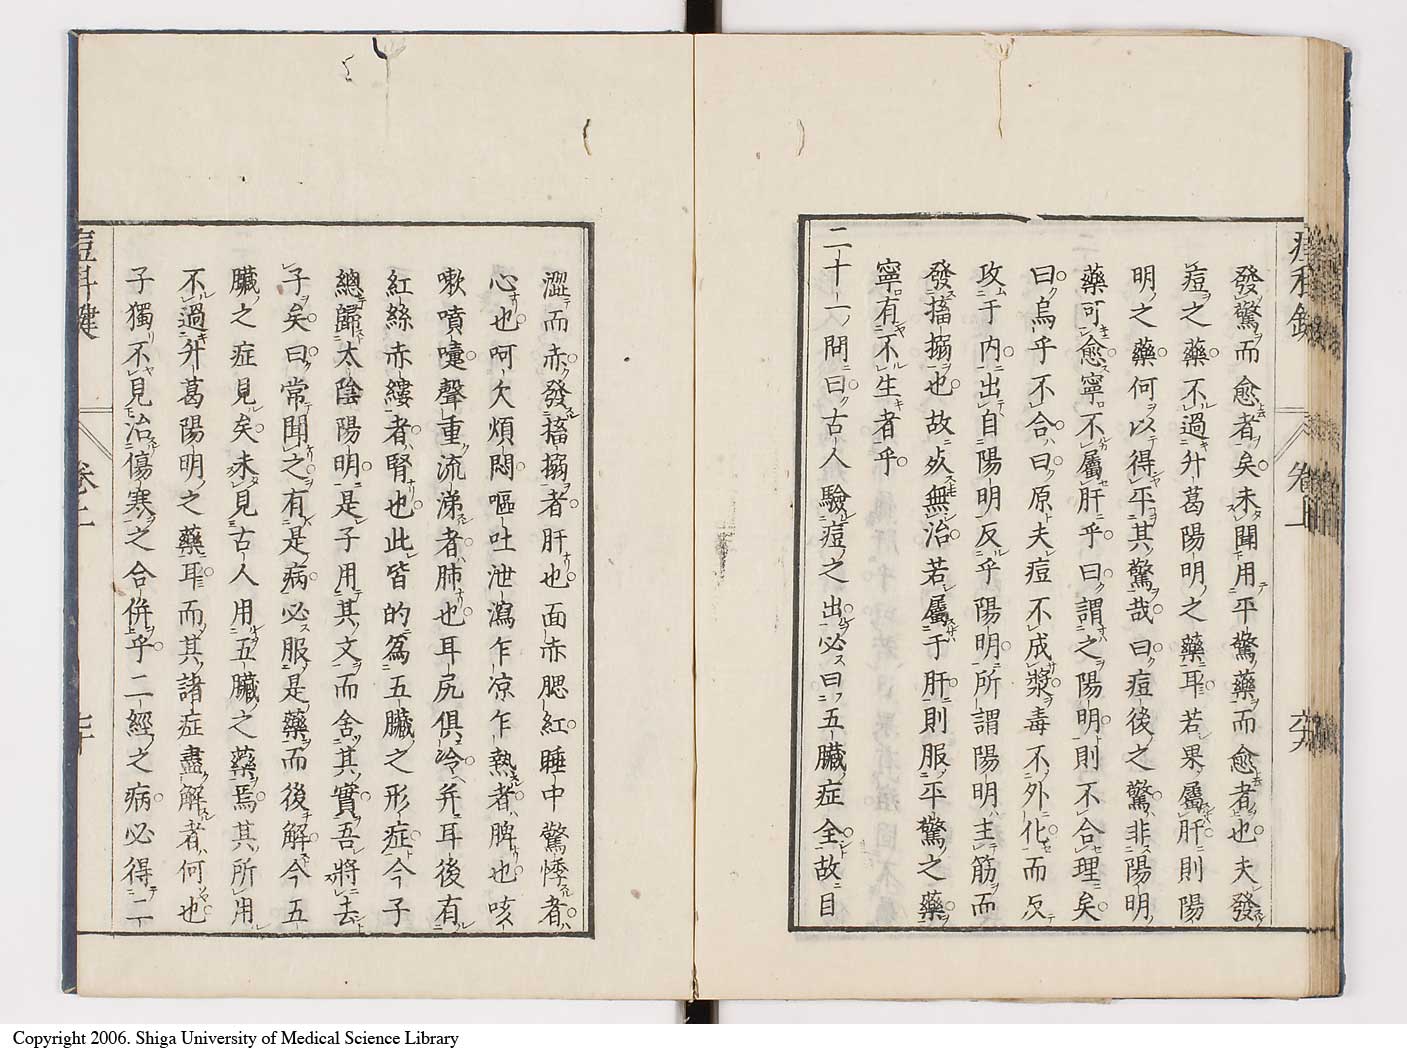 發驚而愈者矣未聞用平驚藥而愈者也夫發
痘之藥不過升葛陽明之藥耳若果屬肝則陽
明之藥何以得平其驚哉曰痘後之驚非陽明
藥可愈寧不屬肝乎曰謂之陽明則不合理矣
曰烏乎不合曰原夫痘不成漿毒不外化而反
攻于内出自陽明反乎陽明所謂陽明主筋而
發搐搦也故必無治若屬于肝則服平驚之藥
寧有不生者乎
二十一問曰古人驗痘之出必曰五臟症全故目
澀而赤發搐搦者肝也面赤腮紅睡中驚悸者
心也呵欠煩悶嘔吐泄瀉乍凉乍熱者脾也咳
嗽噴嚏聲重流涕者肺也耳尻俱冷并耳後有
紅絲赤縷者腎也此皆的爲五臟之形症今子
總歸太陰陽明是子用其文而舍其實吾將去
子矣曰常聞之有是病必服是藥而後解今五
臟之症見矣未見古人用五臟之藥焉其所用
不過升葛陽明之藥耳而其諸症盡解者何也
子獨不見治傷寒之合併乎二經之病必得二
卷上
卷上
Copyright 2006. Shiga University of Medical Science Library